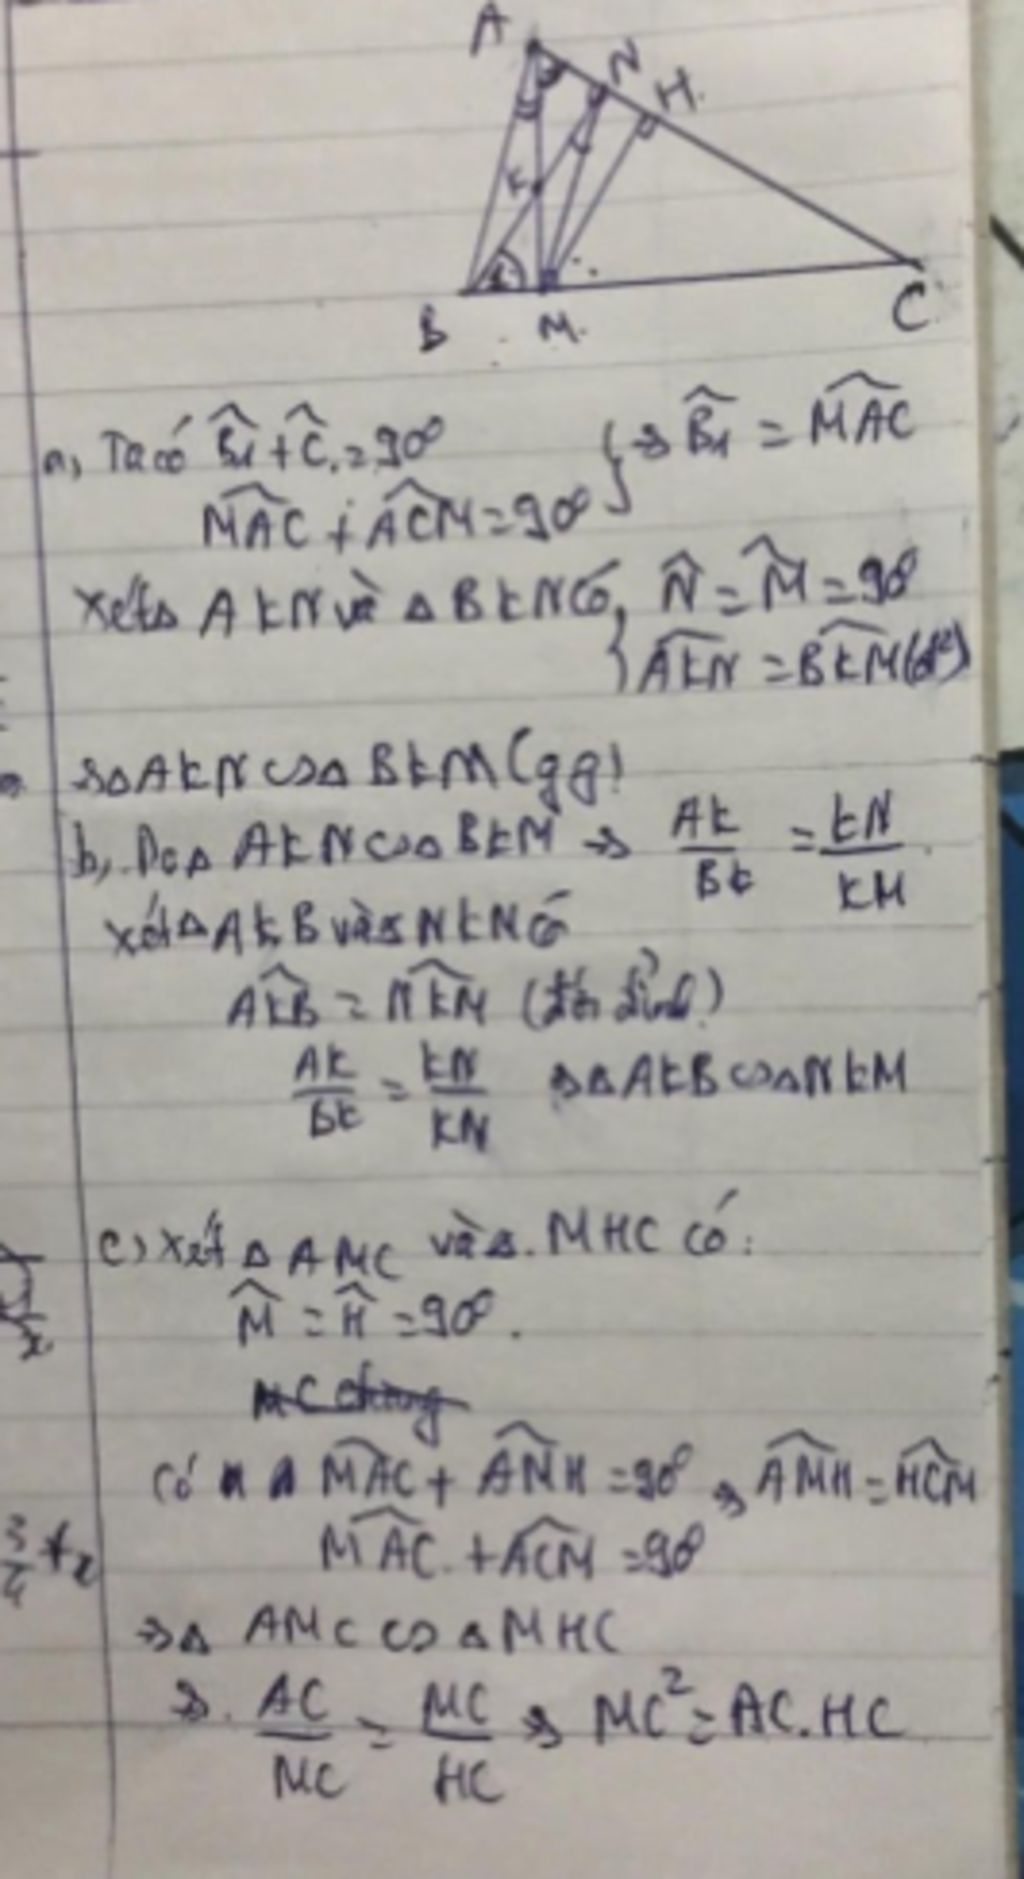 A
N
H
K
B
M
C
a, Ta có B̂1 + Ĉ = 90° } ⇒ B̂1 = MAC
MAC + ACM = 90°
xét Δ AKN và Δ BKN có, N̂ = M̂ = 90°
{ AKN = BKM (đđ)
⇒ Δ AKN ∽ Δ BKM (gg)
b, Do Δ AKN ∽ Δ BKM ⇒ AK/BK = KN/KM
xét Δ AKB và Δ NKN có
AKB = NKM (đối đỉnh)
AK/BK = KN/KN ⇒ Δ AKB ∽ Δ NKM
c) Xét Δ AMC và Δ MHC có:
M̂ = Ĥ = 90°.
MC chung
Có MAC + AMH = 90° ⇒ AMH = HCM
MAC + ACM = 90°
⇒ Δ AMC ∽ Δ MHC
⇒ AC/MC = MC/HC ⇒ MC² = AC.HC